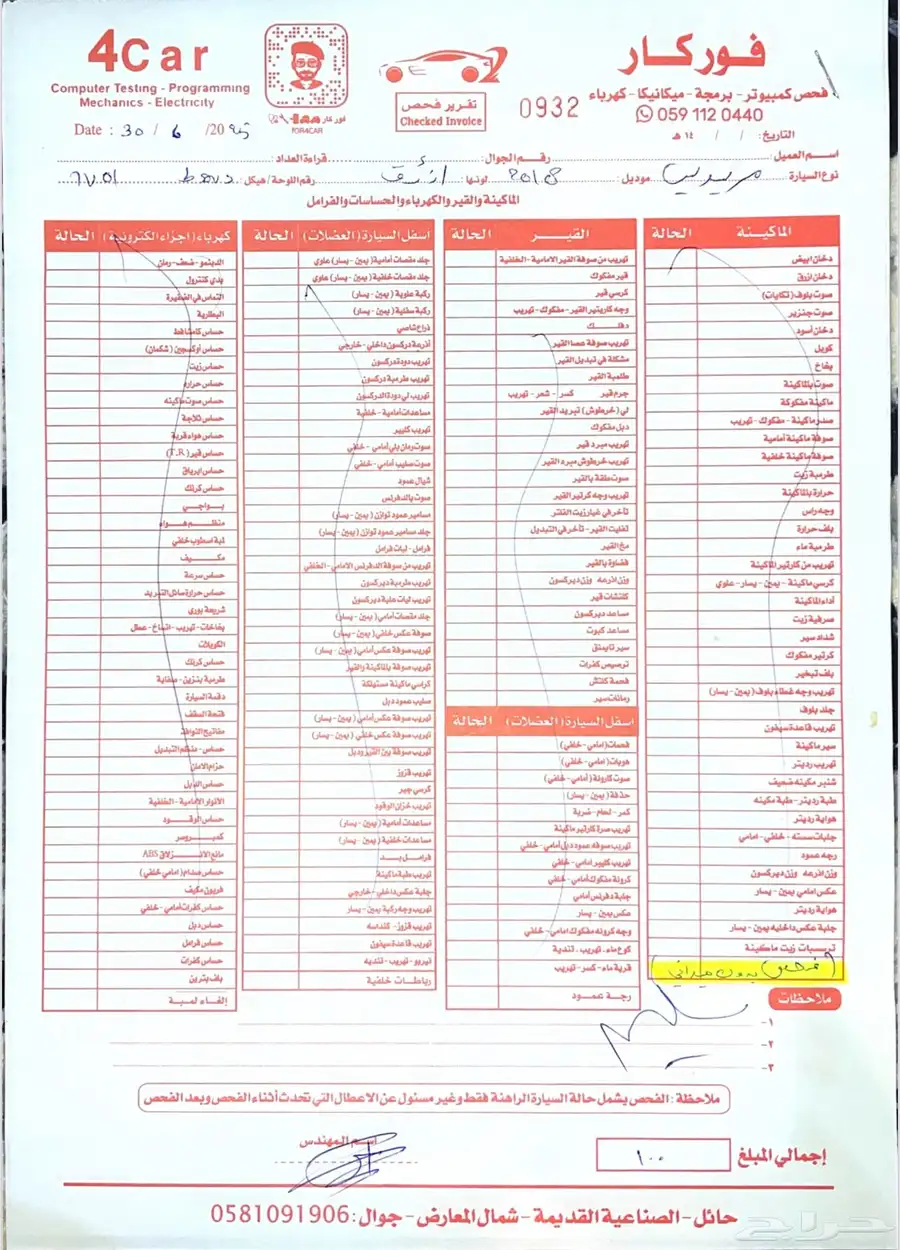 4Car
Computer Testing - Programming
Mechanics - Electricity
Date : 30 / 6 /2025
فور كار
FOR4CAR
تقرير فحص
Checked Invoice
0932
فوركار
فحص كمبيوتر - برمجة - ميكانيكا - كهرباء
059 112 0440
التاريخ: / / ١٤ هـ
اسم العميل رقم الجوال قراءة العداد
نوع السيارة مرسيدس موديل 2018 لونها أزرق رقم اللوحة/هيكل ٦٧٥١
الماكينة والقير والكهرباء والحساسات والفرامل
الماكينة الحالة
دخان ابيض
دخان ازرق
صوت بلوف (تكايات)
صوت جنزير
دخان أسود
كويل
بخاخ
صوت بالماكينة
ماكينة مفكوكة
صدر ماكينة - مفكوك - تهريب
صوفة ماكينة أمامية
صوفة ماكينة خلفية
طرمبة زيت
حرارة بالماكينة
وجه راس
بلف حرارة
طرمبة ماء
تهريب من كارتير الماكينة
كرسي ماكينة - يمين - يسار - علوي
أداء الماكينة
صرفية زيت
شداد سير
كرتير مفكوك
بلف تبخير
تهريب وجه غطاء بلوف (يمين - يسار)
جلد بلوف
تهريب قاعدة سيفون
سير ماكينة
تهريب رديتر
شنبر مكينه ضعيف
طبة رديتر - طبة مكينه
هواية رديتر
جلبات سسته - خلفي - امامي
رجه عمود
وزن اذرعه وزن دركسون
عكس امامي يمين - يسار
هواية رديتر
جلبة عكس داخليه يمين - يسار
ترسبات زيت ماكينة
فحص بدون ميداني
القير الحالة
تهريب من صوفة القير الامامية - الخلفية
قير مفكوك
كرسي قير
وجه كارتير القير - مفكوك - تهريب
دفلك
تهريب صوفة عصا القير
مشكلة في تبديل القير
طلمبة القير
جرم قير كسر - شعر - تهريب
لي (خرطوش) تبريد القير
دبل مفكوك
تهريب مبرد قير
تهريب خرطوش مبرد القير
صوت طقة بالقير
تهريب وجه كرتير القير
تأخر في غيار زيت الفلتر
تفليت القير - تأخر في التبديل
مخ القير
قضاوة بالقير
وزن اذرعه وزن ديركسون
كلتشات قير
مساعد ديركسون
مساعد كبوت
سير تايمنق
ترصيص كفرات
فحمة كلتش
رمانات سير
اسفل السيارة (العضلات) الحالة
فحمات (امامي - خلفي)
هوبات (امامي - خلفي)
صوت كارونة (أمامي - خلفي)
حذفة (يمين - يسار)
كمر - لحام - ضربة
تهريب صرة كارتير ماكينة
تهريب صوفه عمود دبل أمامي - خلفي
تهريب كليبر امامي - خلفي
كرونة مفكوك أمامي - خلفي
جلبة دفرنس أمامي
عكس يمين - يسار
وجه كرونه مفكوك امامي - خلفي
كوع ماء - تهريب - تندية
قربة ماء - كسر - تهريب
رجة عمود
اسفل السيارة (العضلات) الحالة
جلد مقصات أمامية (يمين - يسار) علوي
جلد مقصات خلفية (يمين - يسار) علوي
ركبة علوية (يمين - يسار)
ركبة سفلية (يمين - يسار)
ذراع شاصي
أذرعة دركسون داخلي - خارجي
تهريب دودة دركسون
تهريب طرمبة دركسون
تهريب لي دودة الدركسون
مساعدات أمامية - خلفية
تهريب كليبر
صوت رمان بلي أمامي - خلفي
صوت صليب أمامي - خلفي
شيال عمود
صوت بالدفرنس
مسامير عمود توازن (يمين - يسار)
جلد مسامير عمود توازن (يمين - يسار)
فرامل - ليات فرامل
تهريب من صوفة الدفرنس الامامي - الخلفي
تهريب طرمبة ديركسون
تهريب ليات علبة ديركسون
جلد مقصات أمامي (يمين - يسار)
صوفة عكس خلفي (يمين - يسار)
تهريب صوفة عكس أمامي (يمين - يسار)
تهريب صوفة بالماكينة والقير
كراسي ماكينة مستهلكة
صليب عمود دبل
تهريب صوفة عكس أمامي (يمين - يسار)
تهريب صوفة عكس خلفي (يمين - يسار)
تهريب صوفة بين القير ودبل
تهريب قزوز
كرسي جير
تهريب خزان الوقود
مساعدات أمامية (يمين - يسار)
مساعدات خلفية (يمين - يسار)
فرامل يد
تهريب طبة ماكينة
جلبة عكس داخلي - خارجي
تهريب وجه ركبة يمين - يسار
تهريب قزوز - كنداسه
تهريب قاعدة سيفون
تيربو - تهريب - تنديه
رباطات خلفية
كهرباء (اجزاء الكترونية) الحالة
الدينمو - ضعف - رمان
بدي كنترول
التماس في الضفيرة
البطارية
حساس كامشافط
حساس أوكسجين (شكمان)
حساس زيت
حساس حرارة
حساس صوت ماكينه
حساس ثلاجة
حساس هواء قربة
حساس قير (T.R)
حساس ايرباق
حساس كرنك
بواجي
منظم هواء
لمبة اسطوب خلفي
مكيف
حساس سرعة
حساس حرارة سائل التبريد
شريحة بوري
بخاخات - تهريب - اتساخ - عطل
الكويلات
حساس كرنك
طرمبة بنزين - صفاية
دقمة السيارة
فتحة السقف
مفاتيح النوافذ
حساس - منظم التبديل
حزام الامان
حساس الدبل
الانوار الامامية - الخلفية
حساس الوقود
كمبروسر
مانع الانزلاق ABS
حساس صدام (امامي خلفي)
فريون مكيف
حساس كفرات أمامي - خلفي
حساس دبل
حساس فرامل
حساس كفرات
بلف بنزين
إلغاء لمبة
ملاحظات
١-
٢-
٣-
ملاحظة : الفحص يشمل حالة السيارة الراهنة فقط وغير مسئول عن الاعطال التي تحدث أثناء الفحص وبعد الفحص
إجمالي المبلغ ١٠٠
اسم المهندس
حائل - الصناعية القديمة - شمال المعارض - جوال : 0581091906
حراج